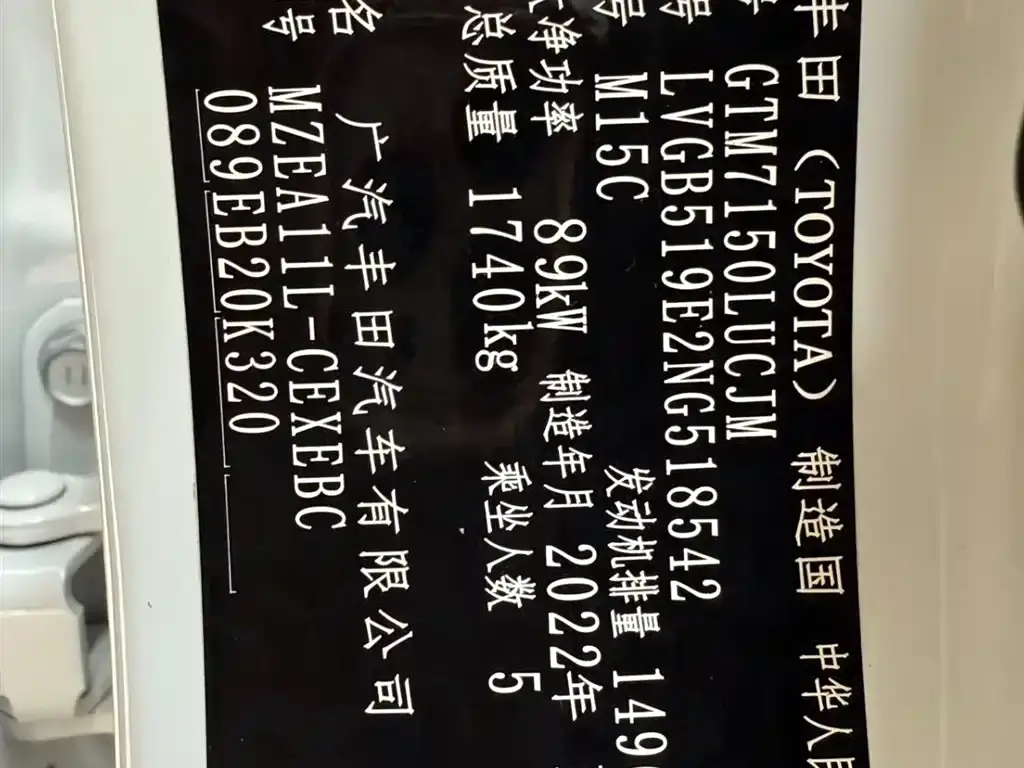 丰田 (TOYOTA) 制造国 中华人民
号 GTM7150LUCJM
号 LVGB519E2NG518542
号 M15C 发动机排量 149
净功率 89kW 制造年月 2022年
总质量 1740kg 乘坐人数 5
名 广汽丰田汽车有限公司
号 MZEA11L-CEXEBC
089EB20K320